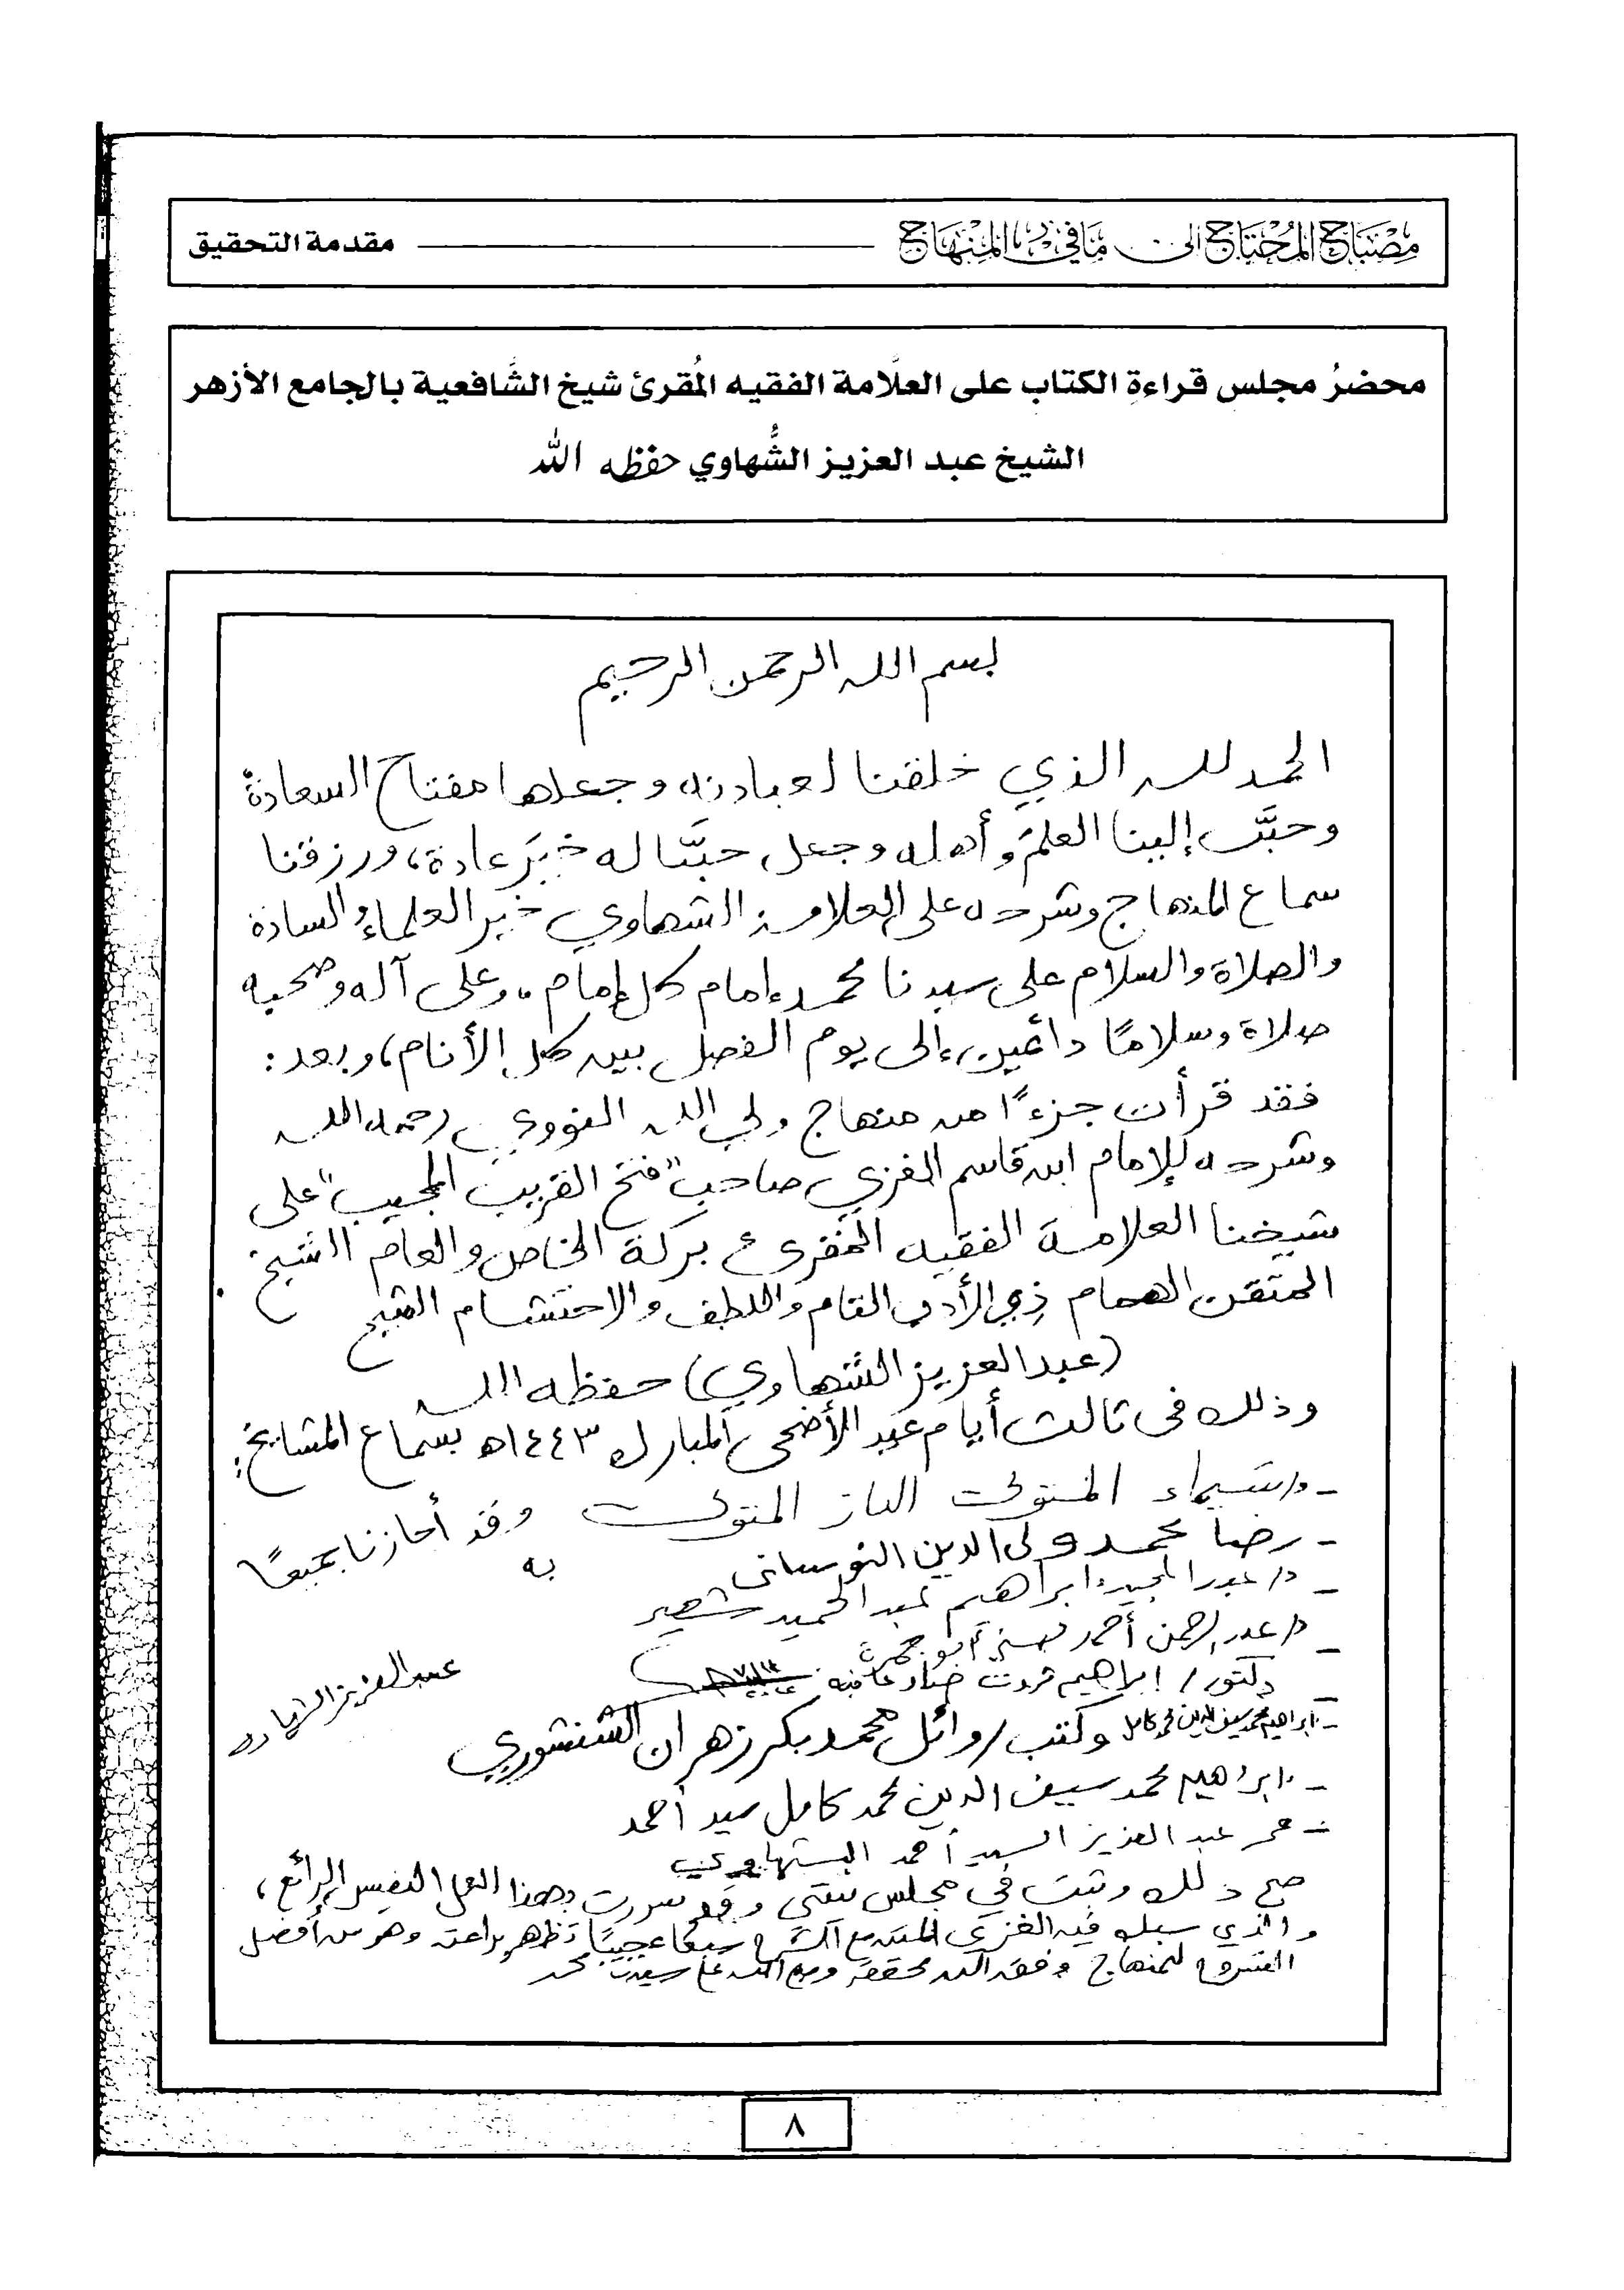 مصباح المحتاج إلى ما في المنهاج
مقدمة التحقيق
محضرُ مجلس قراءةِ الكتاب على العلَّامة الفقيه المُقرئ شيخ الشَّافعية بالجامع الأزهر
الشيخ عبد العزيز الشُّهاوي حفظه الله
بسم الله الرحمن الرحيم
الحمد لله الذي خلقنا لعبادته وجعلها مفتاح السعادة
وحبَّب إلينا العلمَ وأهله وجعل حبَّنا له خيرَ عادة، ورزقنا
سماع المنهاج وشرحه على العلامة الشهاوي خير العلماء والسادة
والصلاة والسلام على سيدنا محمد إمام كل إمام، وعلى آله وصحبه
صلاة وسلامًا دائمين إلى يوم الفصل بين كل الأنام، وبعد:
فقد قرأت جزءًا من منهاج ولي الله النووي رحمه الله
وشرحه للإمام ابن قاسم الغزي صاحب "فتح القريب المجيب" على
شيخنا العلامة الفقيه المقرئ بركة الخاص والعام الشيخ
المتقن الهمام ذي الأدب التام واللطف والاحتشام الشيخ
(عبد العزيز الشهاوي) حفظه الله
وذلك في ثالث أيام عيد الأضحى المبارك ١٤٤٣هـ بسماع المشايخ:
- د/ شيماء المتولى الباز المتولى وقد أجازنا جميعًا
به
- رضا محمد ولي الدين
- د/ عبد المجيد إبراهيم عبد الحميد
- د/ عبد الرحمن أحمد
- دكتور/ إبراهيم ثروت
عبد العزيز الشهاوي
- إبراهيم محمد سيف الدين محمد كامل
وكتب/ وائل محمد بكر زهران الشنشوري
- إبراهيم محمد سيف الدين محمد كامل سيد أحمد
- عمر عبد العزيز السيد أحمد الشهاوي
صح ذلك وثبت في مجلس بيتي وقد سررت بهذا العمل النفيس الرائع،
والذي سبك فيه الغزي المتن مع الشرح سبكًا عجيبًا تظهر براعته وهو من أفضل
الشروح للمنهاج وفق الله محققه وصلى الله على سيدنا محمد
٨